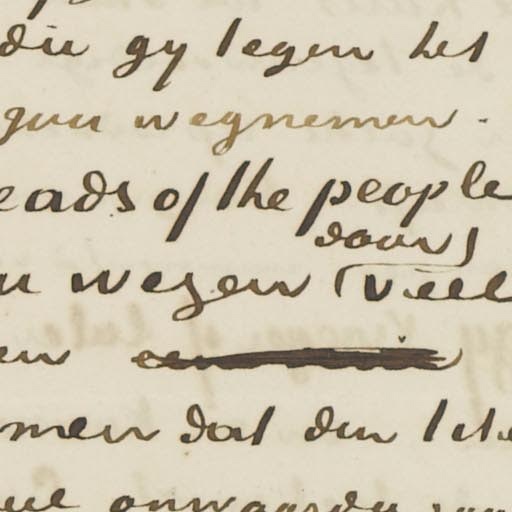 die gy tegen het
wegnemen.
eads of the people
door
wezen (veel
en
men dat den
onwaardig